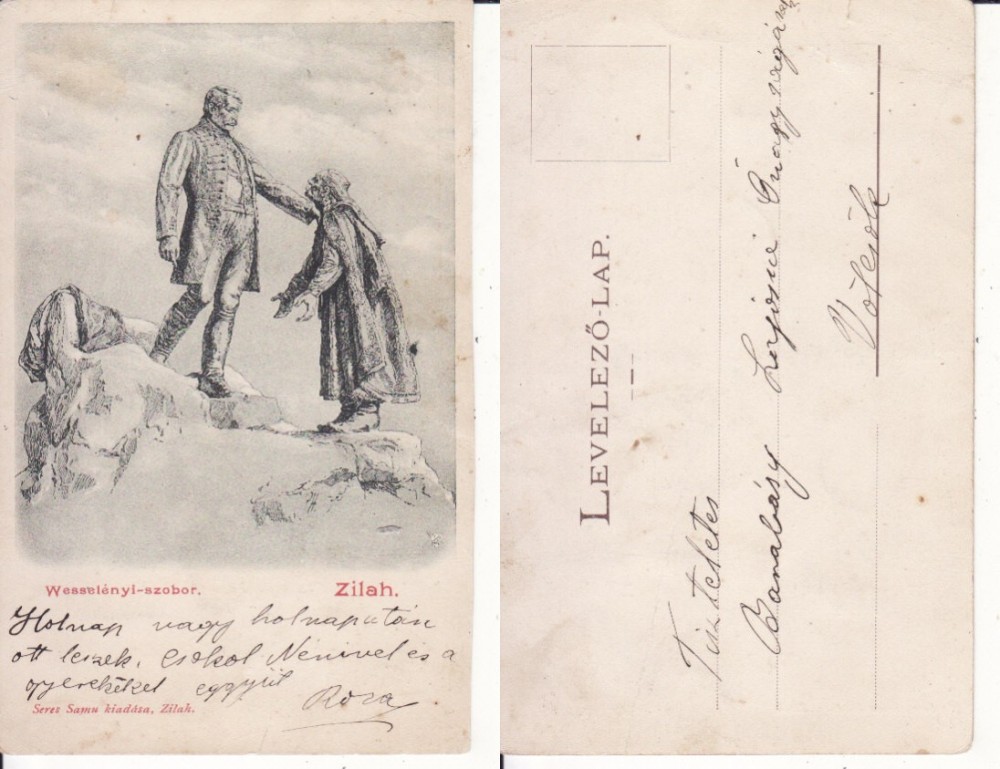 Wesselényi-szobor. Zilah.
Holnap vagy holnapután
ott leszek. Csokol Nénivel és a
gyerekekel eggyüt
Roza
Seres Samu kiadása, Zilah.
LEVELEZŐ-LAP.
Tisztetetes
Barabásy Lajosné Őnagysága
Völcsök